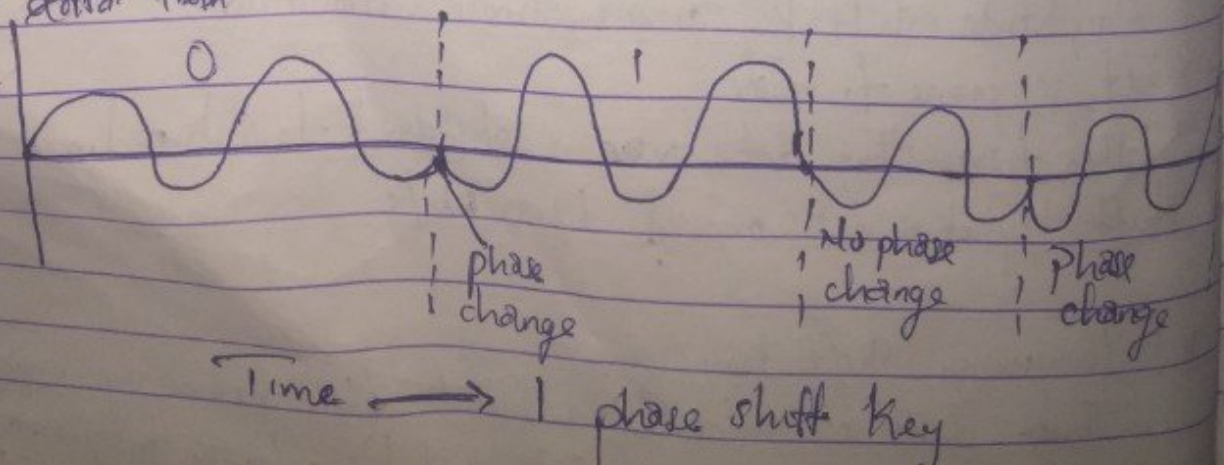 0
1
phase
change
No phase
change
phase
change
Time
phase shift Key